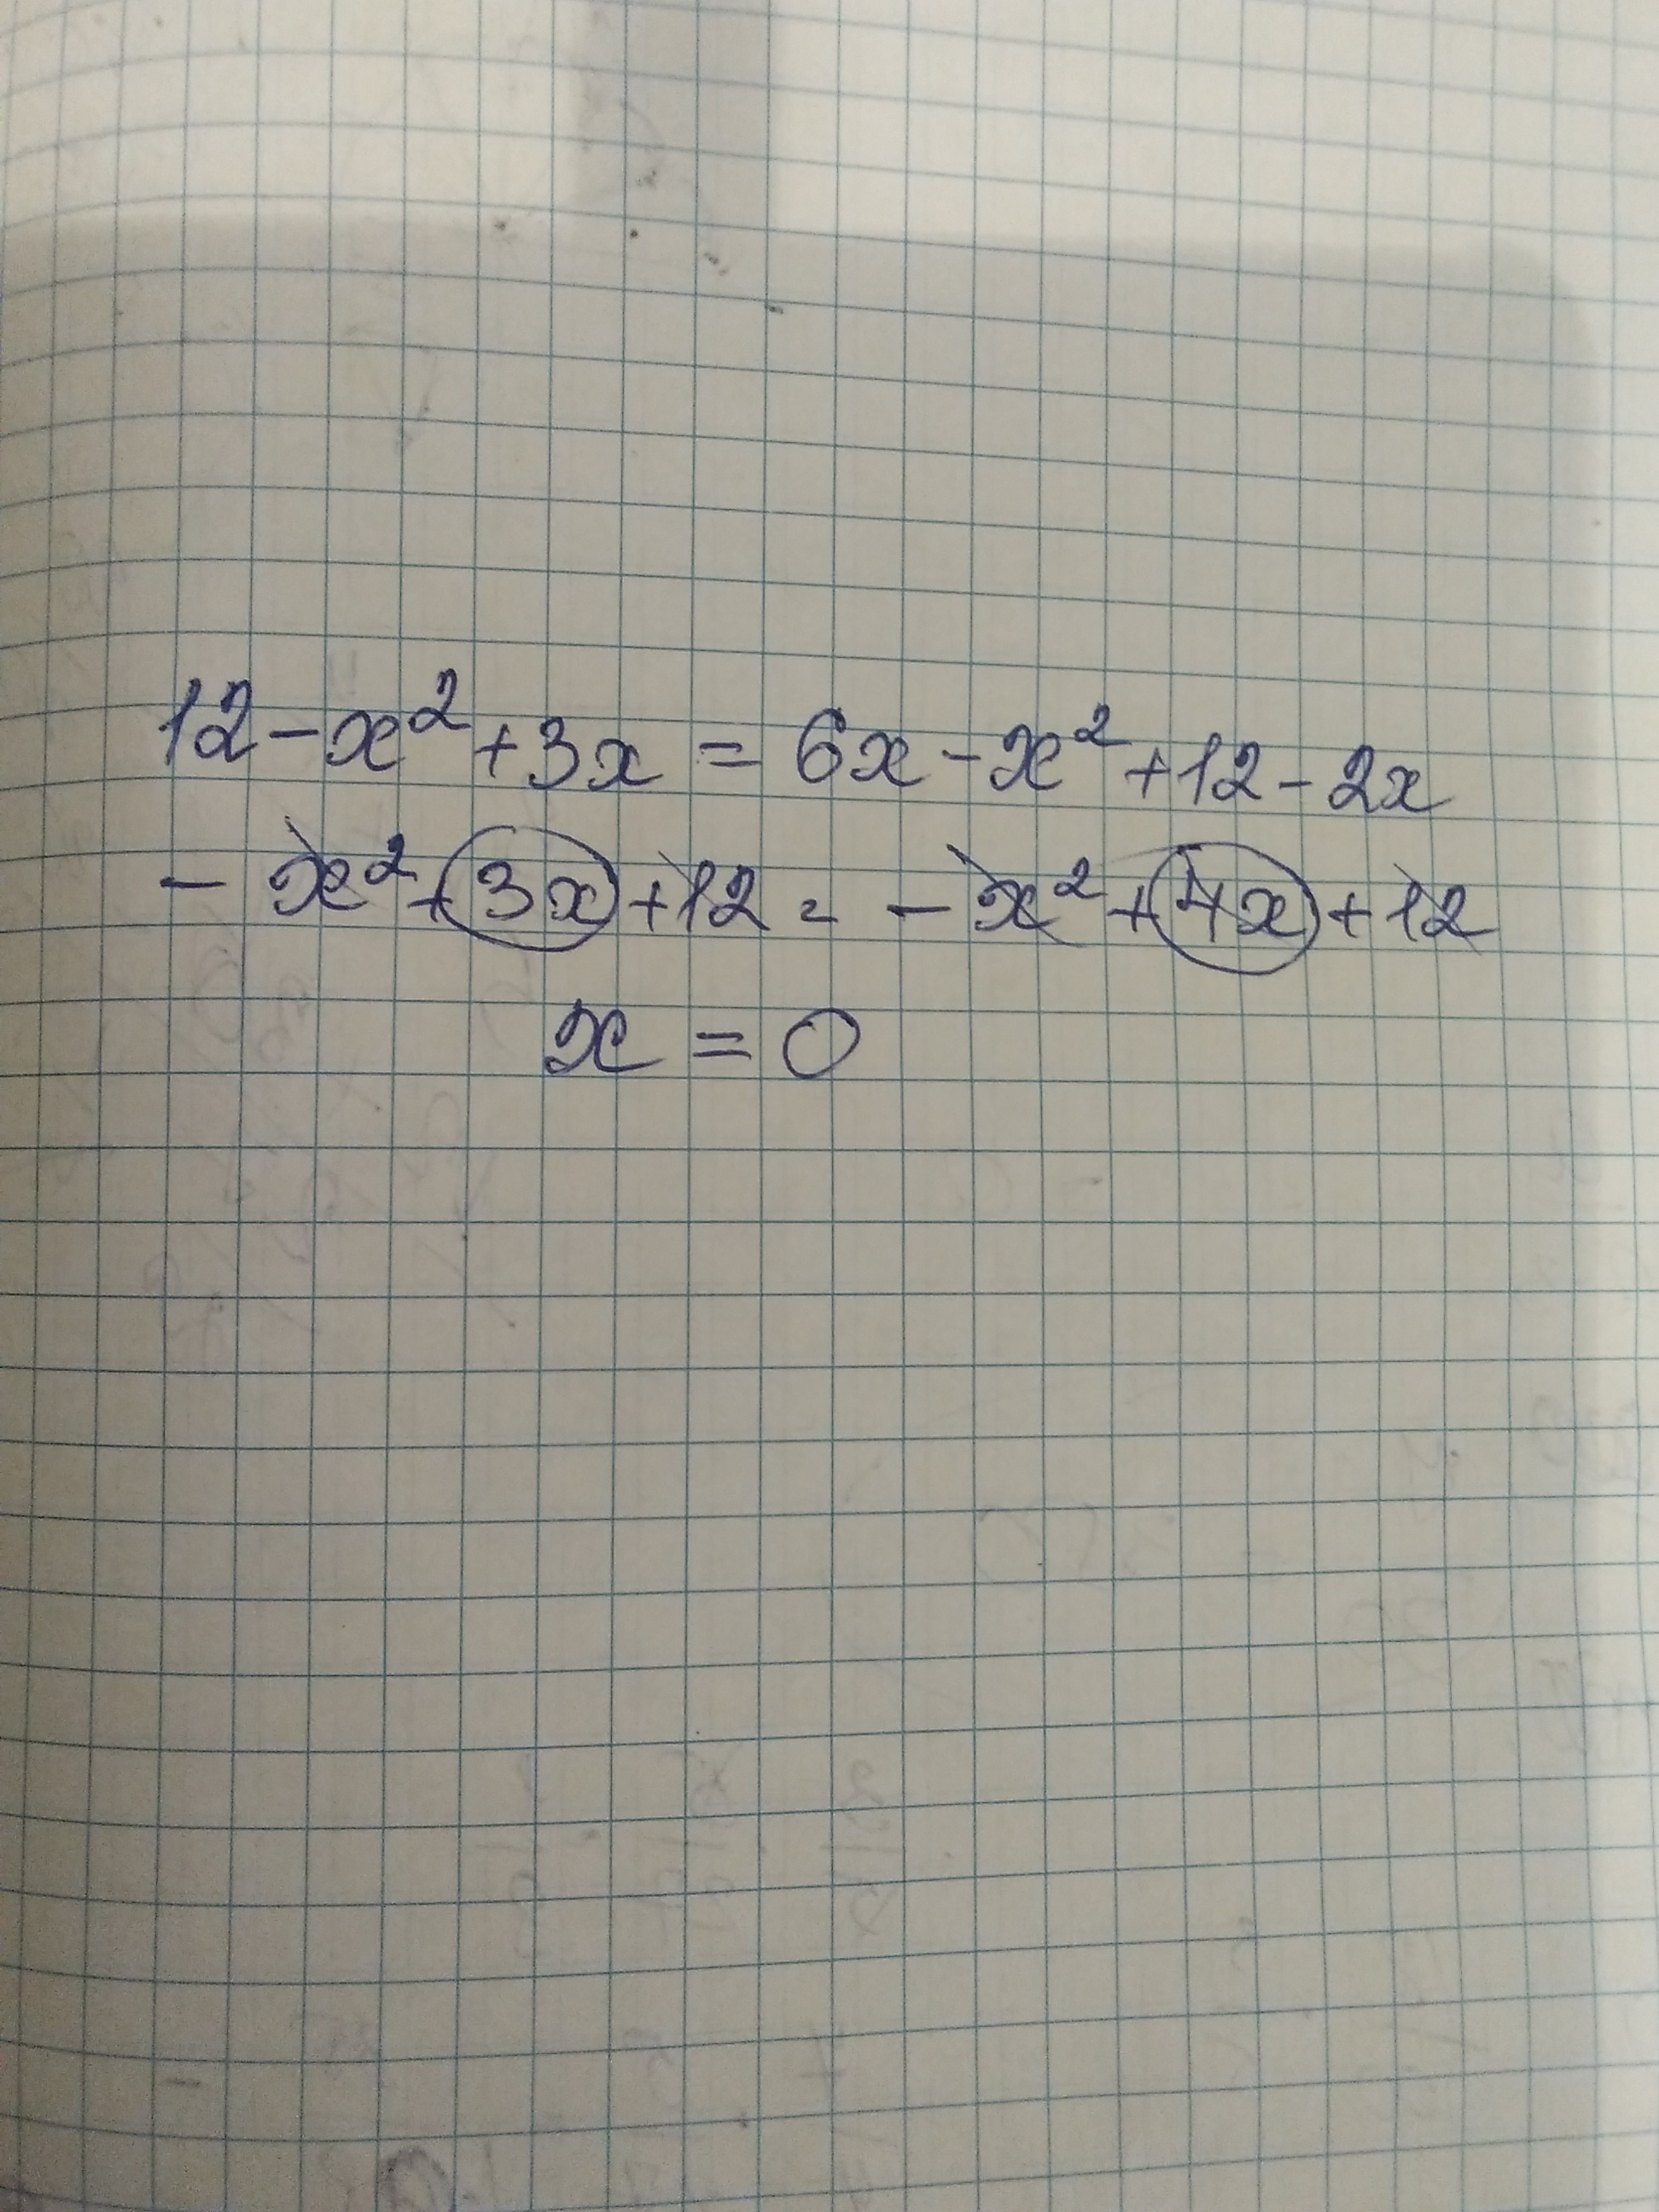 12 - x² + 3x = 6x - x² + 12 - 2x
- x² + 3x + 12 = - x² + 4x + 12
x = 0